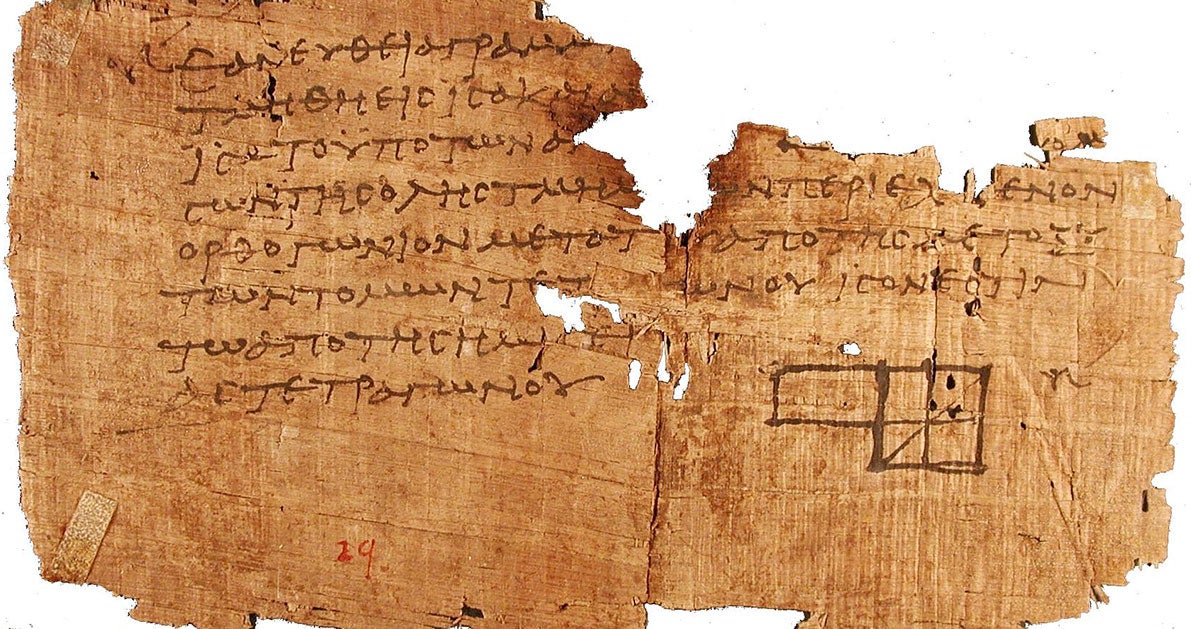 ΕΑΝΕΥΘΕΙΑΓΡΑΜ
ΤΜΗΘΗΕΙϹΙϹΑΚΑΙΑ
ΙϹΑΤΟΥΠΟΤΩΝΑ
ϹΩΝΤΗϹΟΛΗϹΤΜΗΜ ΩΝΠΕΡΙΕΧ ΜΕΝΟΝ
ΟΡΘΟΓΩΝΙΟΝΜΕΤΟΤ ΥΑΠΟΤΗϹΜΕΤΟΞΥ
ΤΩΝΤΟΜΩΝΤΕΤ ΩΝΟΥΙϹΟΝΕϹΤΙΝ
ΤΩΑΠΟΤΗϹΗΜΙ
ΑϹΤΕΤΡΑΓΩΝΟΥ
29